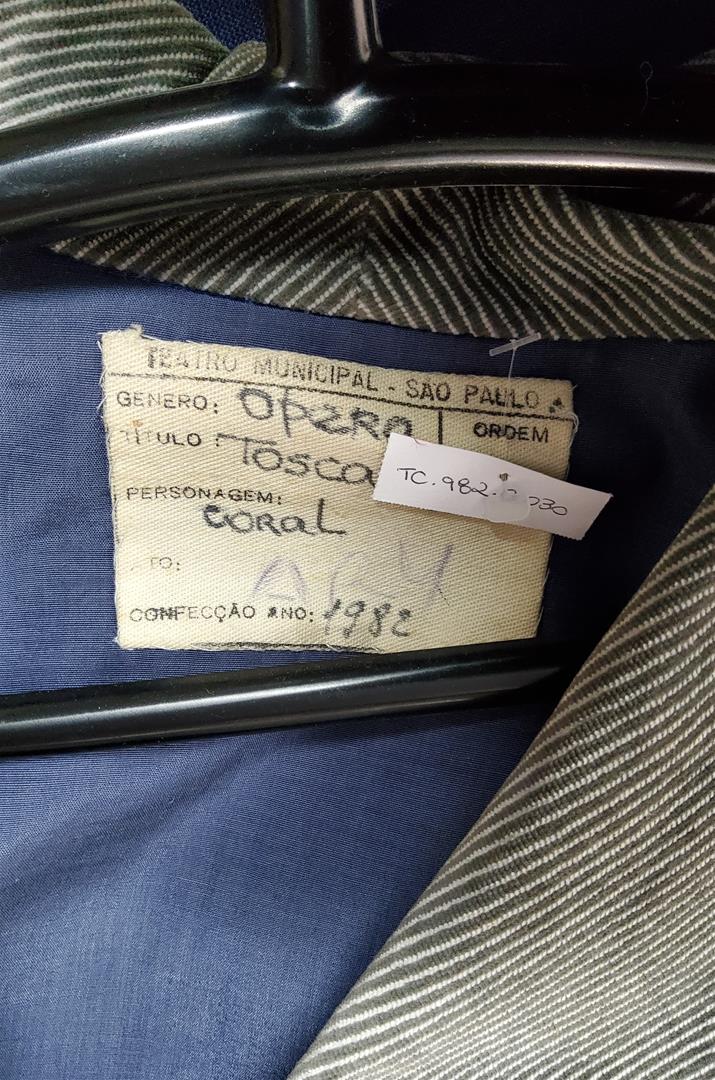 TEATRO MUNICIPAL - SAO PAULO
GENERO: Opera
ORDEM
TÍTULO: Tosca
TC.982. 030
PERSONAGEM:
coral
TO:
CONFECÇÃO ANO: 1982